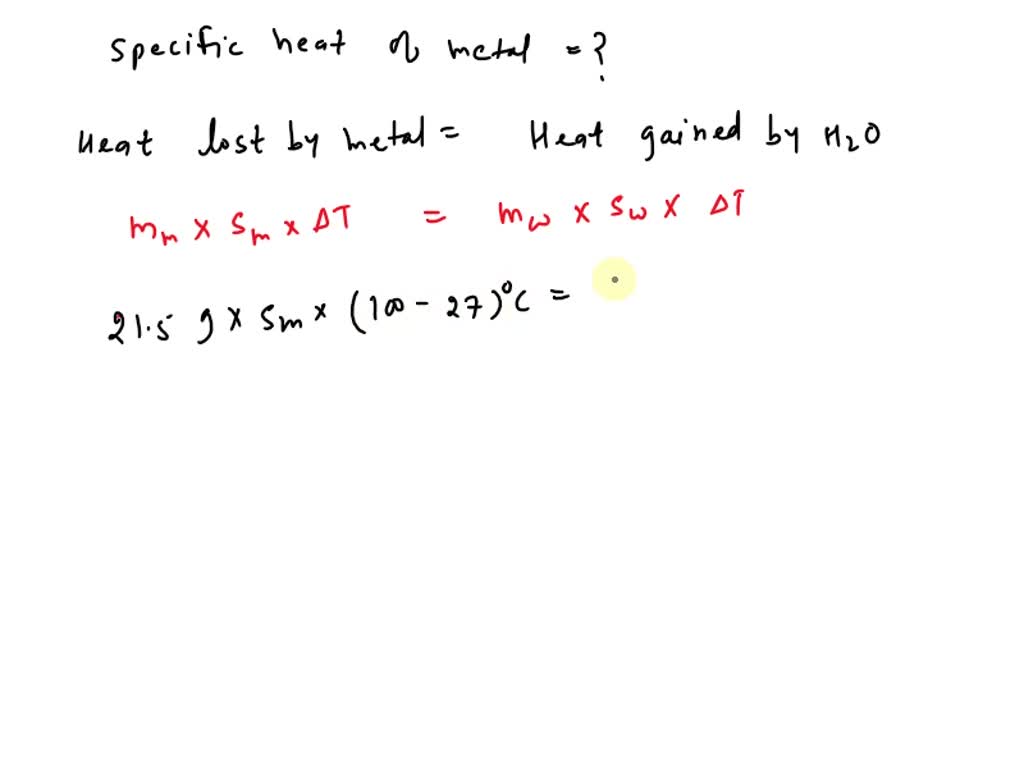 specific heat of metal = ?
Heat lost by metal = Heat gained by H₂O
mₘ × Sₘ × ΔT = m_w × S_w × ΔT
21.5 g × Sₘ × (100 - 27)°C =